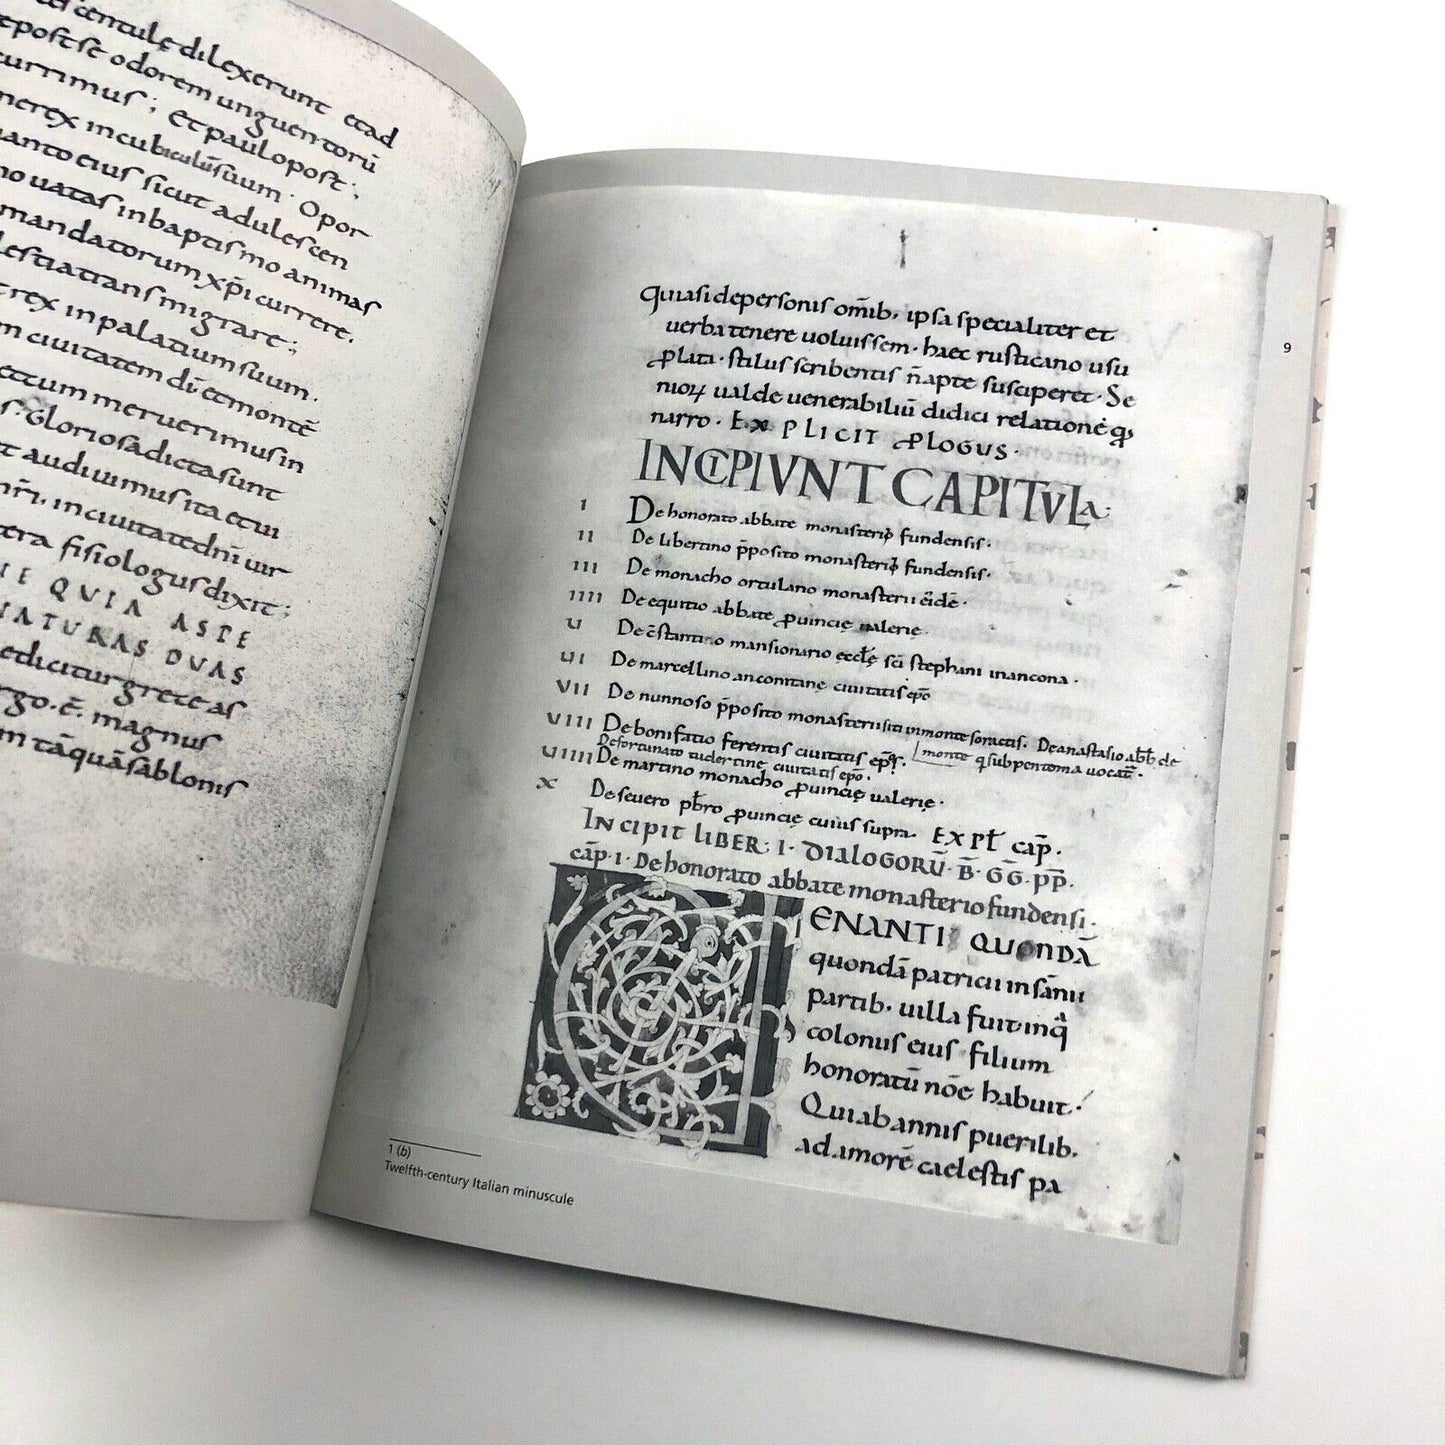 centule dilexerunt etad
post se odorem unguentorū
currimus; Et paulopost;
merex incubiculūsuum. Opor
eius sicut adulescen
uatas inbaptismo animas
mandatorum xp̄i currere.
transmigrare;
rex inpalatium suum.
ciuitatem dī etmontē
meruerimus in
Gloriosa dicta sunt
audiuimus ita etui
inciuitatednī uir
fisiologus dixit;
QUIA ASPE
NATURAS DUAS
ediciturgrece as
ē. magnus
tāquāsablonis
9
quiasi depersonis om̄ib, ipsa specialiter et
uerba tenere uoluissem. haec rusticano usu
plati. stilus scribentis n̄apte susciperet. Se
nioꝝ ualde uenerabiliū didici relatione q;
narro. EXPLICIT PLOGUS.
INCIPIVNT CAPITVLA.
I De honorato abbate monasterio fundensis.
II De libertino p̄posito monasterio fundensis.
III De monacho ortulano monasterii ei̅dē.
IIII De equitio abbate ꝓuincię ualerię.
U De c̄stantino mansionario ęccl̄ę sc̄i stephani inancona.
UI De marcellino anconitanę ciuitatis ep̄o
VII De nunnoso p̄posito monasteriisiti inmonte soractis. De anastasio abb̄ de
VIII De bonifatio ferentis ciuitatis ep̄o. monte q subpentoma uocat̄.
De fortunato tudertine ciuitatis ep̄o.
UIIII De martino monacho ꝓuincię ualerię.
X De seuero pb̄ro ꝓuincię cuius supra. EXPL̄ cap̄.
INCIPIT LIBER. I. DIALOGORŪ. B̄. ḠḠ. P̄P̄.
cap̄. I. De honorato abbate monasterio fundensi.
ENANTII QUONDĀ
quondā patricii insānii
partib. uilla fuit. inq̄
colonus eius filium
honoratū nōe habuit.
Quiabannis puerilib.
ad. amorē caelestis pa
1 (b)
Twelfth-century Italian minuscule